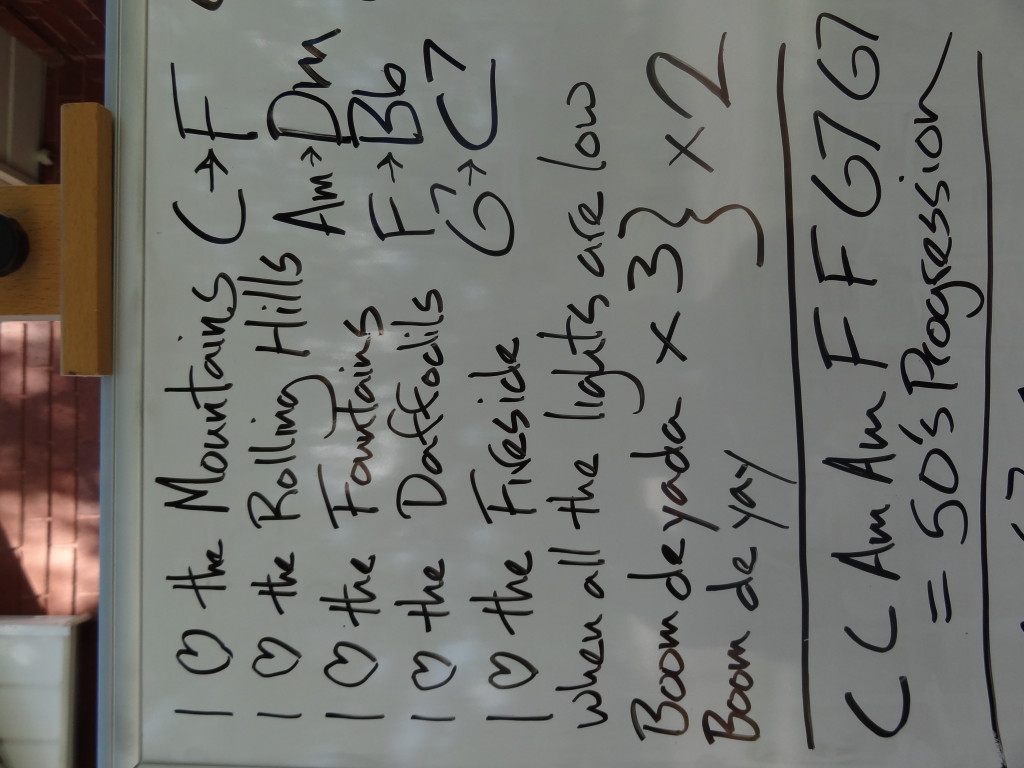 I ♡ the Mountains C→F
I ♡ the Rolling Hills Am→Dm
I ♡ the Fountains F→Bb
I ♡ the Daffodils G7→C7
I ♡ the Fireside
when all the lights are low
Boom de yada × 3 } × 2
Boom de yay
C C Am Am F F G7 G7
= 50's Progression